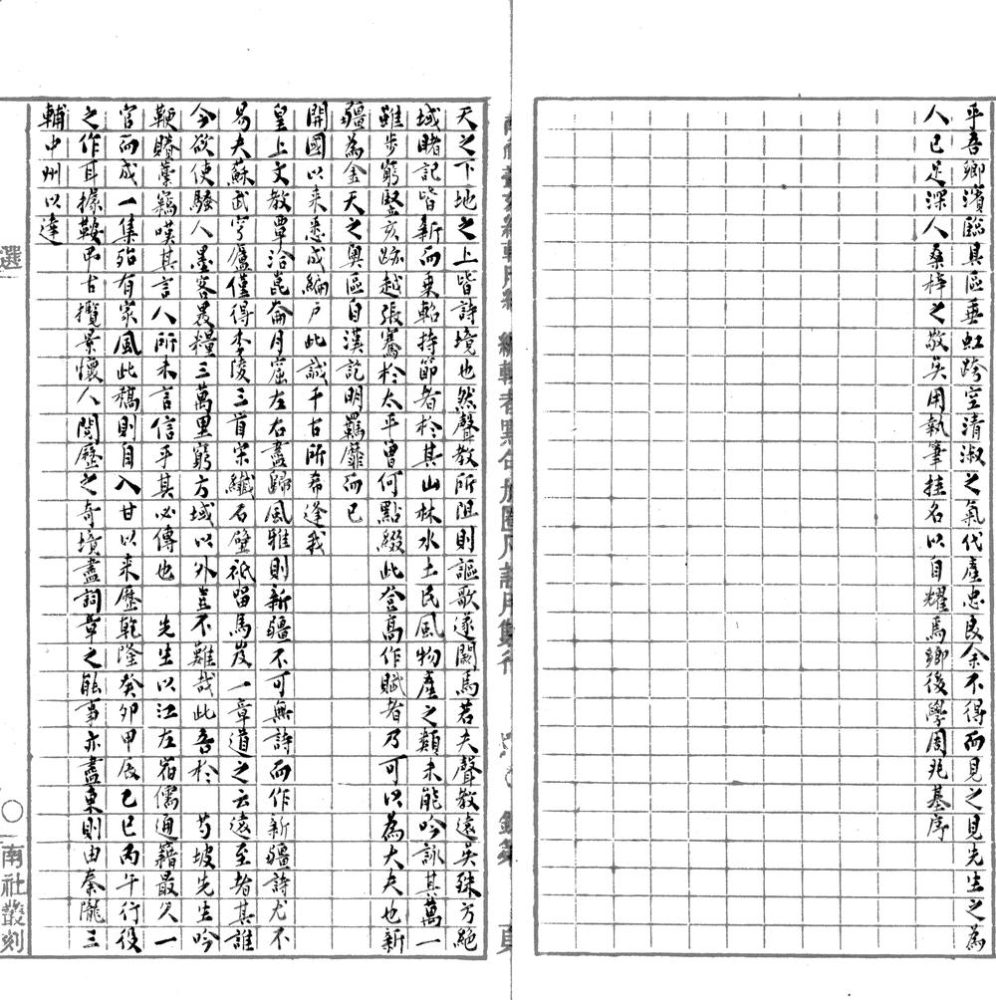 平吾鄉濱臨具區垂虹跨空清淑之氣代產忠良余不得而見之見先生之為
人已足深人桑梓之敬矣用執筆挂名以自耀焉鄉後學周兆基序
天之下地之上皆詩境也然聲教所阻則謳歌遂闕焉若夫聲教遠矣殊方絕
域睹記皆新而乘軺持節者於其山林水土民風物產之類未能吟詠其萬一
雖步窮豎亥跡越張騫於太平曾何點綴此登高作賦者乃可以為大夫也新
疆為金天之奧區自漢訖明羈靡而已
開國以來悉成編戶此誠千古所希逢我
皇上文教覃洽崑崙月窟左右盡歸風雅則新疆不可無詩而作新疆詩尤不
易夫蘇武穹廬僅得李陵三首宋纖石壁祇留馬岌一章道之云遠至者其誰
今欲使騷人墨客裹糧三萬里窮方域以外豈不難哉此吾於 芍坡先生吟
鞭賸藁竊嘆其言人所未言信乎其必傳也 先生以江左宿儒通籍最久一
官而成一集殆有家風此稿則自入甘以來歷乾隆癸卯甲辰乙巳丙午行役
之作耳據鞍弔古攬景懷人閱歷之奇境盡詞章之能事亦盡東則由秦隴三
輔中州以達
選
南社叢刻
編輯者點句加圈
頁